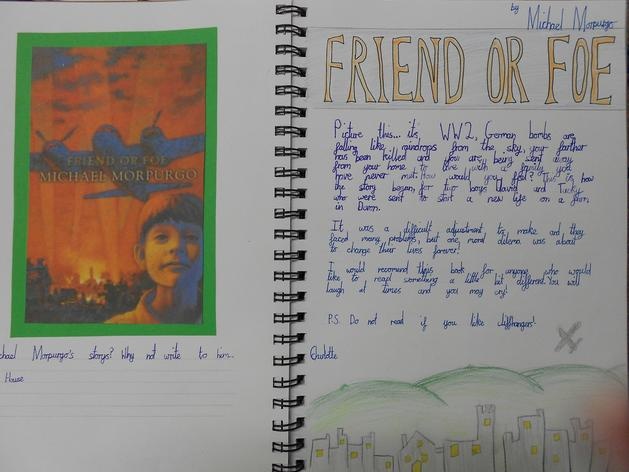 FRIEND OR FOE
MICHAEL MORPURGO
chael Morpurgo's storys? Why not write to him...
House
by Michael Morpurgo
FRIEND OR FOE
Picture this... it's WW2, German bombs are
falling like raindrops from the sky, your farther
has been killed and you are being sent away
from your home to live with a family you
have never met. How would you feel? This is how
the story began for two boys David and Tucky
who were sent to start a new life on a farm
in Devon.
It was a difficult adjustment to make and they
faced many problems, but one moral dilema was about
to change their lives forever!
I would recomend this book for anyone who would
like to read something a little bit different. You will
laugh at times and you may cry!
P.S. Do not read if you like cliffhangers!
Charlotte